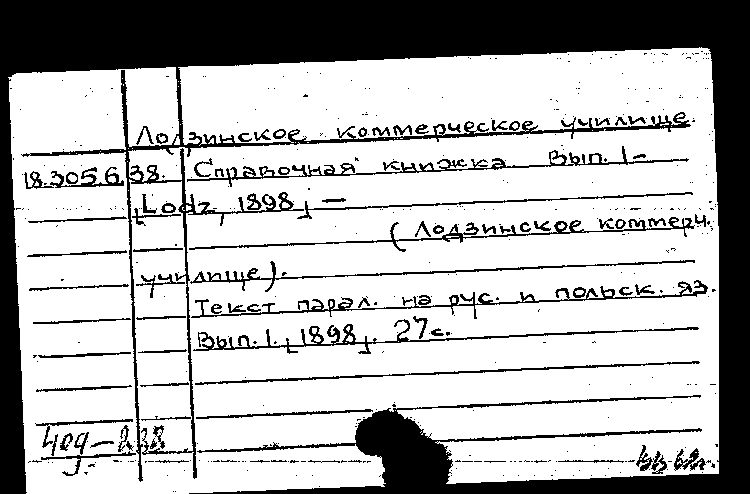 Лодзинское коммерческое училище.
18.305.6.38. Справочная книжка Вып. 1-
[Lodz, 1898] —
(Лодзинское коммерч.
училище).
Текст парал. на рус. и польск. яз.
Вып. 1. [1898]. 27с.